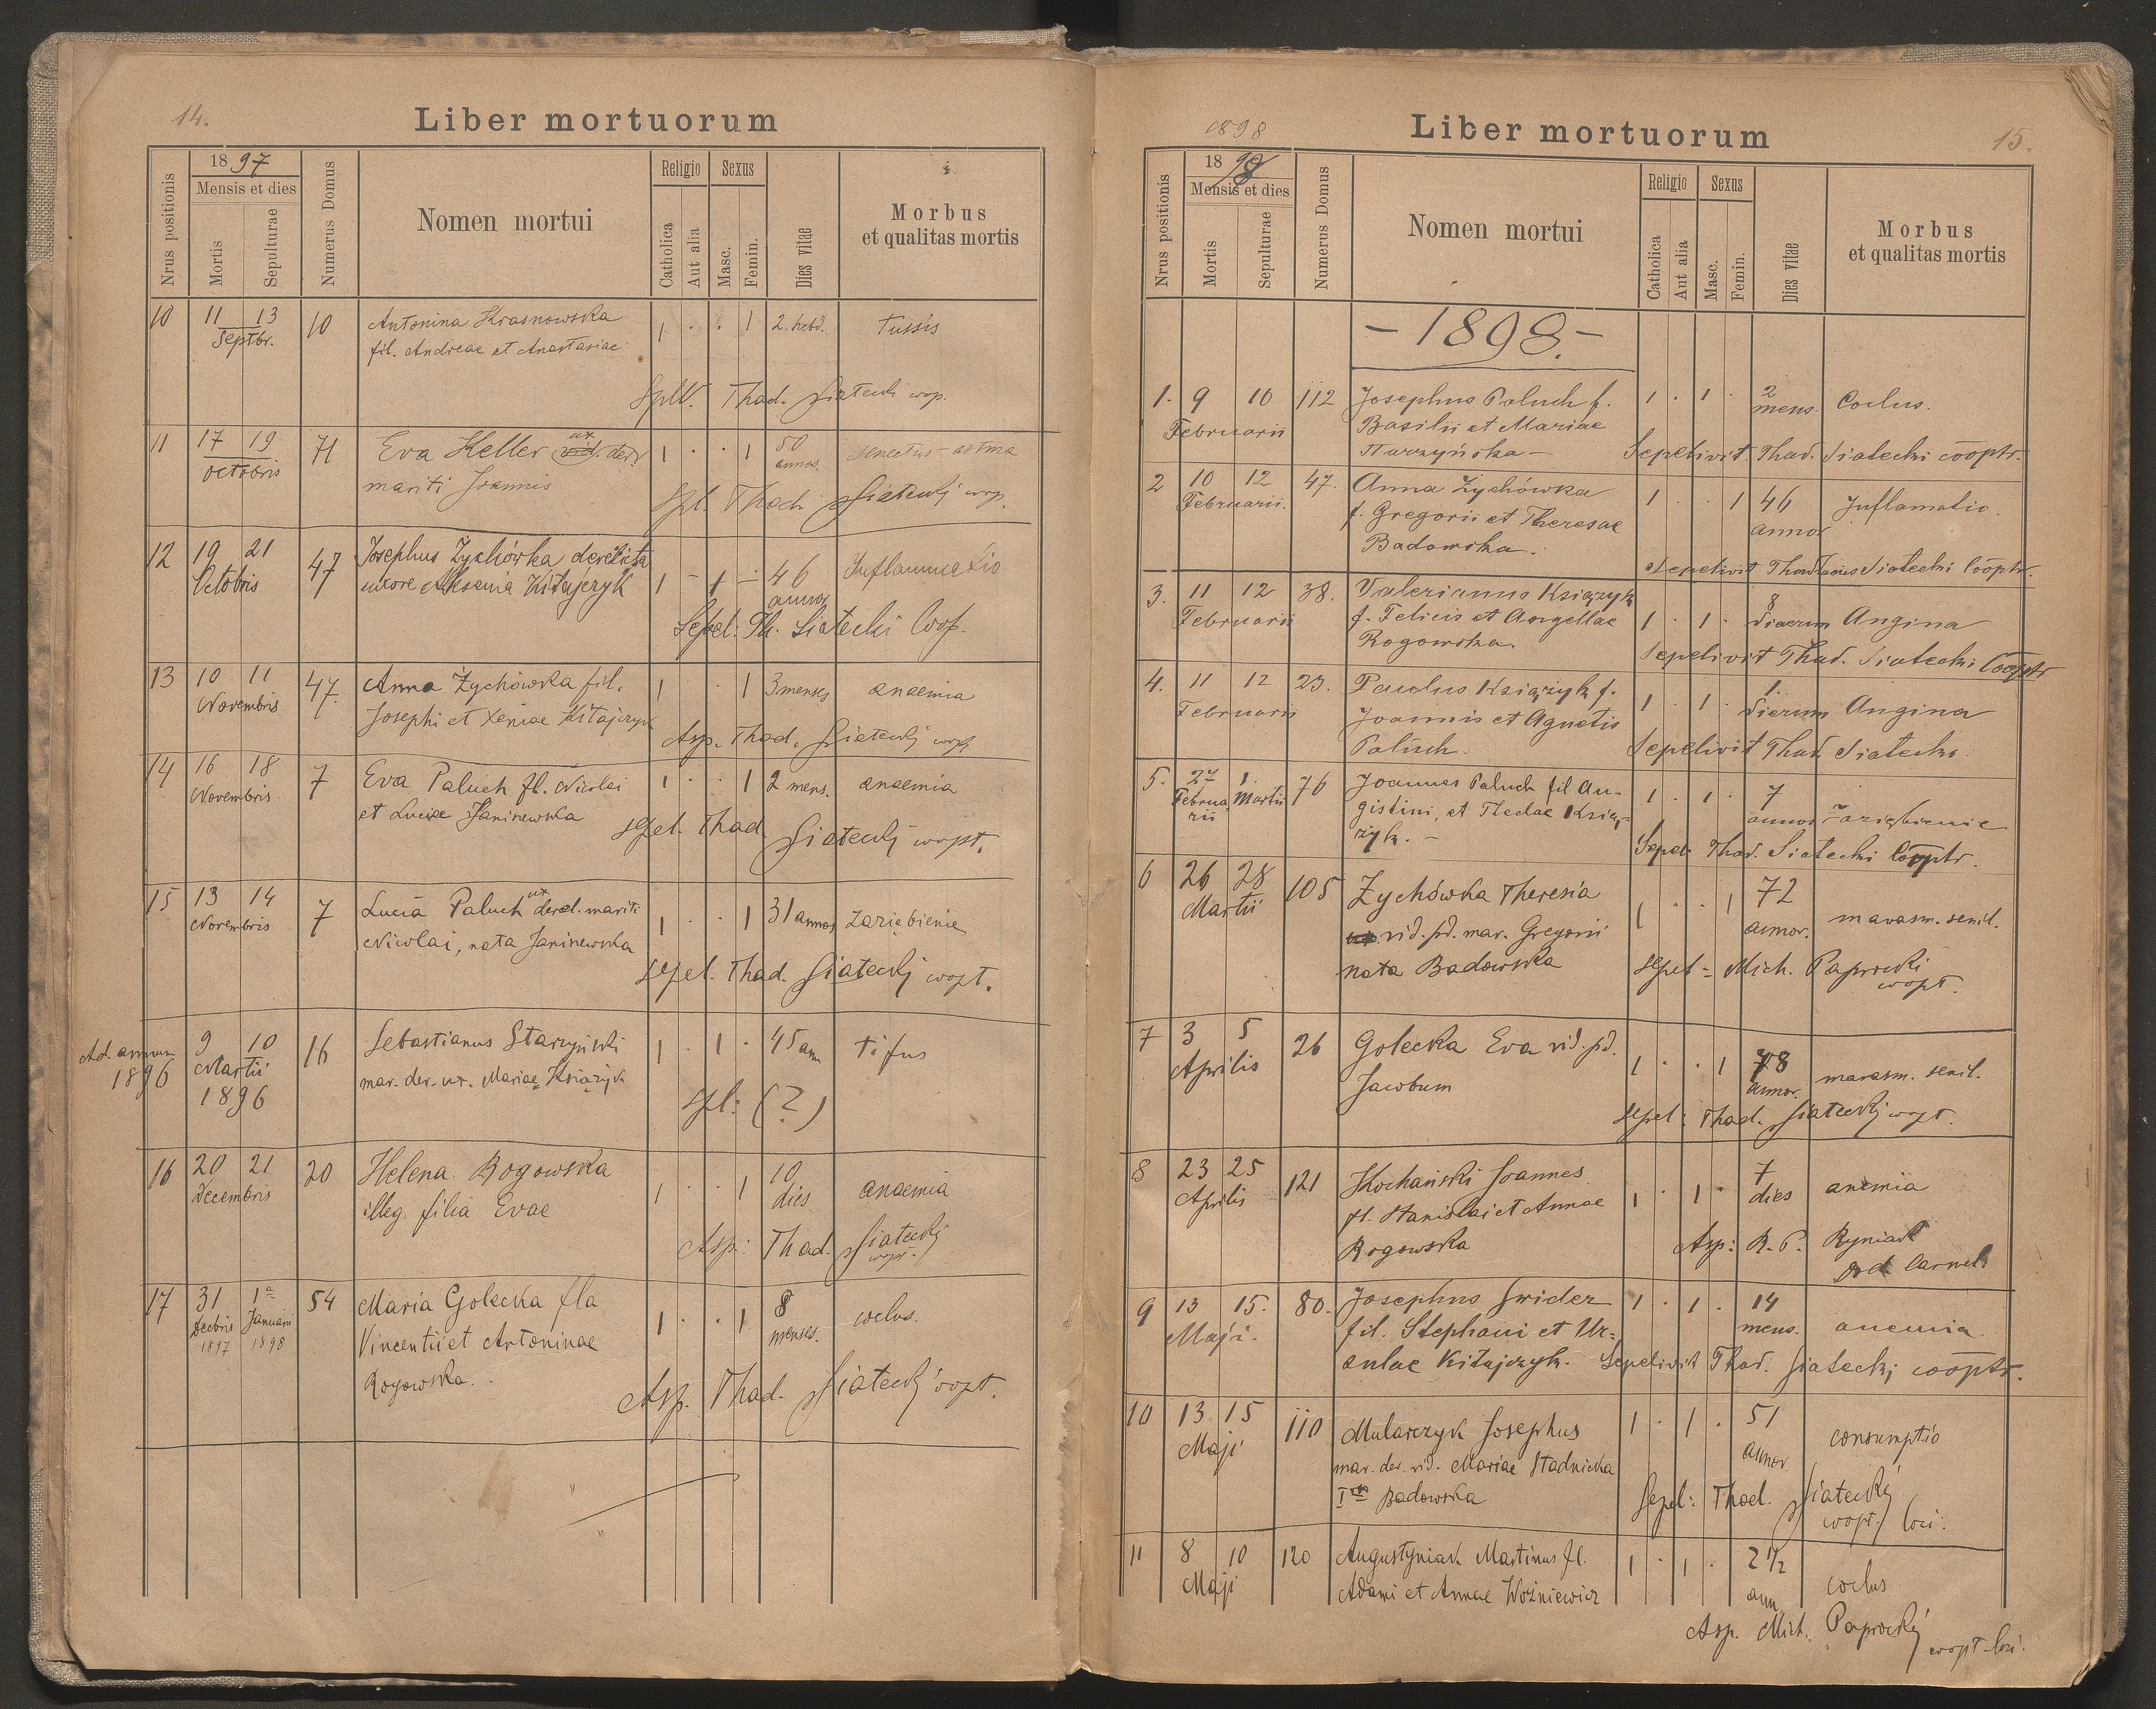 14.
Liber mortuorum
Nrus positionis
1897
Mensis et dies
Mortis
Sepulturae
Numerus Domus
Nomen mortui
Religio
Catholica
Aut alia
Sexus
Masc.
Femin.
Dies vitae
Morbus
et qualitas mortis
10 11 13 10 Antonina Krasnowska 1 · · 1 2. hebd. Tussis
Septbr. fil. Andreae et Anastasiae
Thad. Siatecki
11 17 19 71 Eva Keller ux 1 · · 1 50 senectus - astma
octobris mariti Joannis annos.
Spl. Thad. Siatecki
12 19 21 47 Josephus Zychówka derelicta 1 - 1 - 46 Inflammatio
Octobris uxore Aksenia Kitajczyk annor
Sepel: Th. Siatecki Coop.
13 10 11 47. Anna Żychówka fil. 1 · 1 3 menses anaemia
Novembris Josephi et Xeniae Kitajczyk
Asp. Thad. Siatecki
14 16 18 7 Eva Paluch fl. Nicolai 1 · · 1 2 mens. anaemia
Novembris et Luciae Janinewska
sepel. Thad Siatecki coopt.
15 13 14 7 Lucia Paluch ux derel. mariti 1 · · 1 31 annos zaziebienie
Novembris Nicolai, nata Janinewska
sepel. Thad. Siatecki coopt.
Ad. annum 1896
9 10 16 Sebastianus Starzyński 1 · 1 · 45 ann tifus
Martii mar. der. ux. Mariae Książyk
1896
spl: (?)
16 20 21 20 Helena Rogowska 1 · · 1 10 anaemia
Decembris illeg. filia Evae dies
Asp: Thad. Siatecki coopt.
17 31 1a 54 Maria Golecka fla 1 · · 1 8 coclus.
Decbris Januarii Vincentii et Antoninae menses.
1897 1898 Rogowska.
Asp. Thad. Siatecki coopt.
1898
Liber mortuorum
15.
Nrus positionis
1898
Mensis et dies
Mortis
Sepulturae
Numerus Domus
Nomen mortui
Religio
Catholica
Aut alia
Sexus
Masc.
Femin.
Dies vitae
Morbus
et qualitas mortis
- 1898. -
1. 9 10 112 Josephus Paluch f. 1 · 1 · 2 Coclus.
Februarii Basilii et Mariae mens.
Sepelivit Thad. Siatecki cooptr.
2 10 12 47. Anna Zychówka 1 · · 1 46 Inflamatio.
Februarii. f. Gregorii et Theresae annor
Badowska.
Sepelivit Thad Siatecki Cooptr.
3. 11 12 38. Valerianus Książyk 1 · 1 · 8 Angina
Februarii f. Felicis et Angellae dierum
Rogowska.
Sepelivit Thad. Siatecki Cooptr
4. 11 12 23. Paulus Książyk f. 1 · 1 · 1. Angina
Februarii Joannis et Agnetis dierum
Paluch.
Sepelivit Thad Siatecki
5. 27 1. 76 Joannes Paluch fil Au- 1 · 1 · 7
Februa Martii gistini, et Teclae Książ- annos
rii zyk. -
Sepel: Thad. Siatecki Cooptr.
6 26 28 105 Zychówka Theresia 1 · · 1 72 marasm. senil.
Martii vid. pd. mar. Gregorii annor.
nata Badowska
sepel = Mich. Paprocki
coopt.
7 3 5 26 Golecka Eva vid. pd. 1 · · 1 78 marasm. senil.
Aprilis Jacobum annor.
sepel: Thad. Siatecki coopt.
8 23 25 121 Kochański Joannes 1 · 1 · 7 anemia
Aprilis fl. Stanislai et Annae dies
Rogowska
Asp: R. P. Ryniak
Ord Carmel.
9 13 15. 80. Josephus Swider 1 · 1 · 14 anemia
Maji. fil. Stephani et Ur= mens.
sulae Kitajczyk.
Sepelivit Thad. Siatecki cooptr.
10 13 15 110 Mularczyk Josephus 1 · 1 · 51 consumptio
Maji mar. der. vid. Mariae Stadnicka annor.
Badowska
Sepel: Thad. Siatecki
coopt. loci.
11 8 10 120 Augustyniak Martinus fl. 1 · 1 · 2 1/2 coclus
Maji Adami et Annae Woźniewicz ann.
Asp. Mich. Paprocki
coopt. loci.